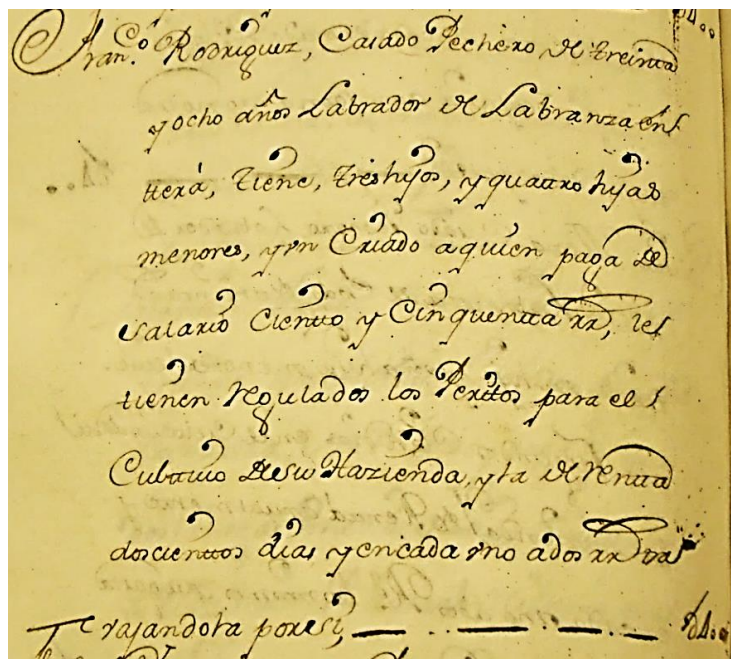 Fran.co Rodriguez, Casado Pechero de treinta
y ocho años Labrador de Labranza en
ttera, tiene, tres hijos, y quattro hijas
menores, y vn Criado a quien paga de
Salario Ciento y Cinquentta rr,, les
tienen regulados los Peritos para el
Cultivo de su Hazienda, y la de rentta
doscienttos dias y en cada vno a dos rr
vajandola por si,